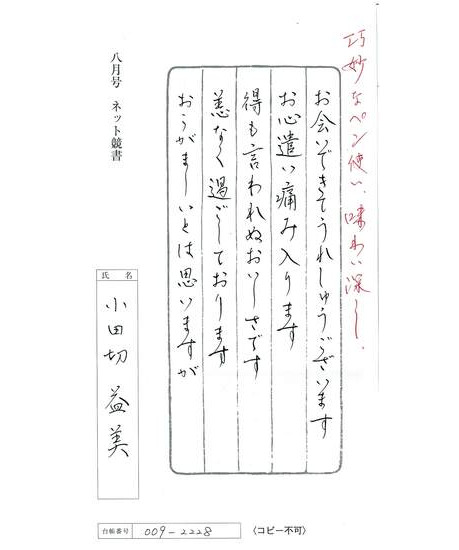 巧妙なペン使い、味わい深し、
お会いできてうれしゅうございます
お心遣い痛み入ります
得も言われぬおいしさです
恙なく過ごしております
おこがましいとは思いますが
八月号 ネット競書
氏名
小田切 益美
台帳番号 009-2228
〈コピー不可〉